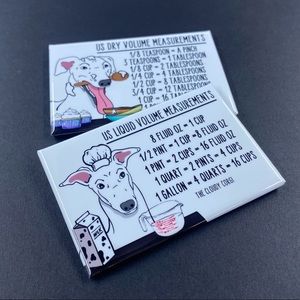 US DRY VOLUME MEASUREMENTS
1/8 TEASPOON = A PINCH
3 TEASPOONS = 1 TABLESPOON
1/8 CUP = 2 TABLESPOONS
1/4 CUP = 4 TABLESPOONS
1/2 CUP = 8 TABLESPOONS
3/4 CUP = 12 TABLESPOONS
1 CUP = 16
US LIQUID VOLUME MEASUREMENTS
8 FLUID OZ = 1 CUP
1/2 PINT = 1 CUP = 8 FLUID OZ
1 PINT = 2 CUPS = 16 FLUID OZ
1 QUART = 2 PINTS = 4 CUPS
1 GALLON = 4 QUARTS = 16 CUPS
THE CLOUDY CORGI